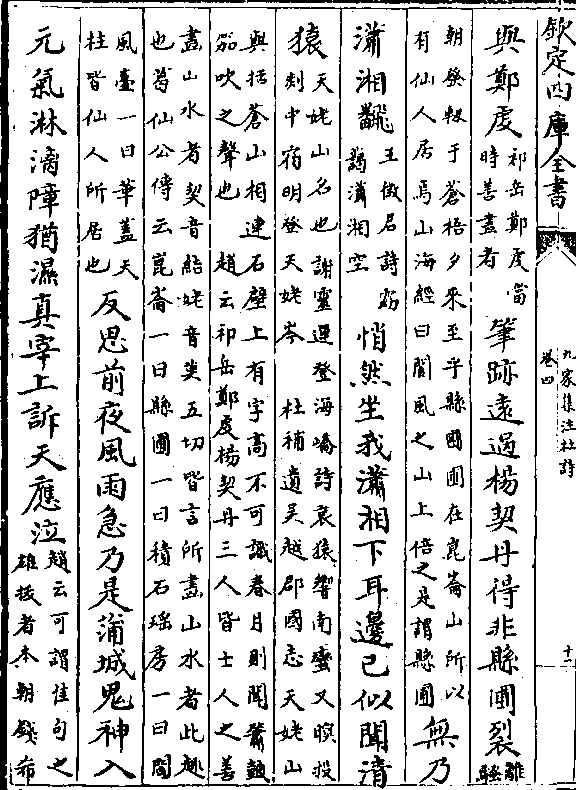 欽定四庫全書
九家集注杜詩
卷四
十二
與鄭虔
祁岳鄭虔當
時善畫者
筆跡遠過楊契丹得非縣圃裂
離
騷
朝發軔于蒼梧夕來至乎縣圃圃在崑崙山所以
有仙人居焉山海經曰閬風之山上倍之是謂縣圃
無乃
瀟湘翻
王徽君詩
謁瀟湘空
悄然坐我瀟湘下耳邊已似聞清
猿
天姥山名也謝靈運登海嶠詩哀猿響南蠻又暝投
剡中宿明登天姥岑 杜補遺吳越郡國志天姥山
與括蒼山相連石壁上有字高不可識春月則聞簫鼓
笳吹之聲也 趙云祁岳鄭虔楊契丹三人皆士人之善
畫山水者契音結姥音莫五切皆言所畫山水者此趣
也葛仙公傳云崑崙一曰縣圃一曰積石瑶房一曰閬
風臺一曰華葢天
柱皆仙人所居也
反思前夜風雨急乃是蒲城鬼神入
元氣淋漓障猶濕真宰上訴天應泣
趙云可謂佳句之
雄拔者本朝錢希